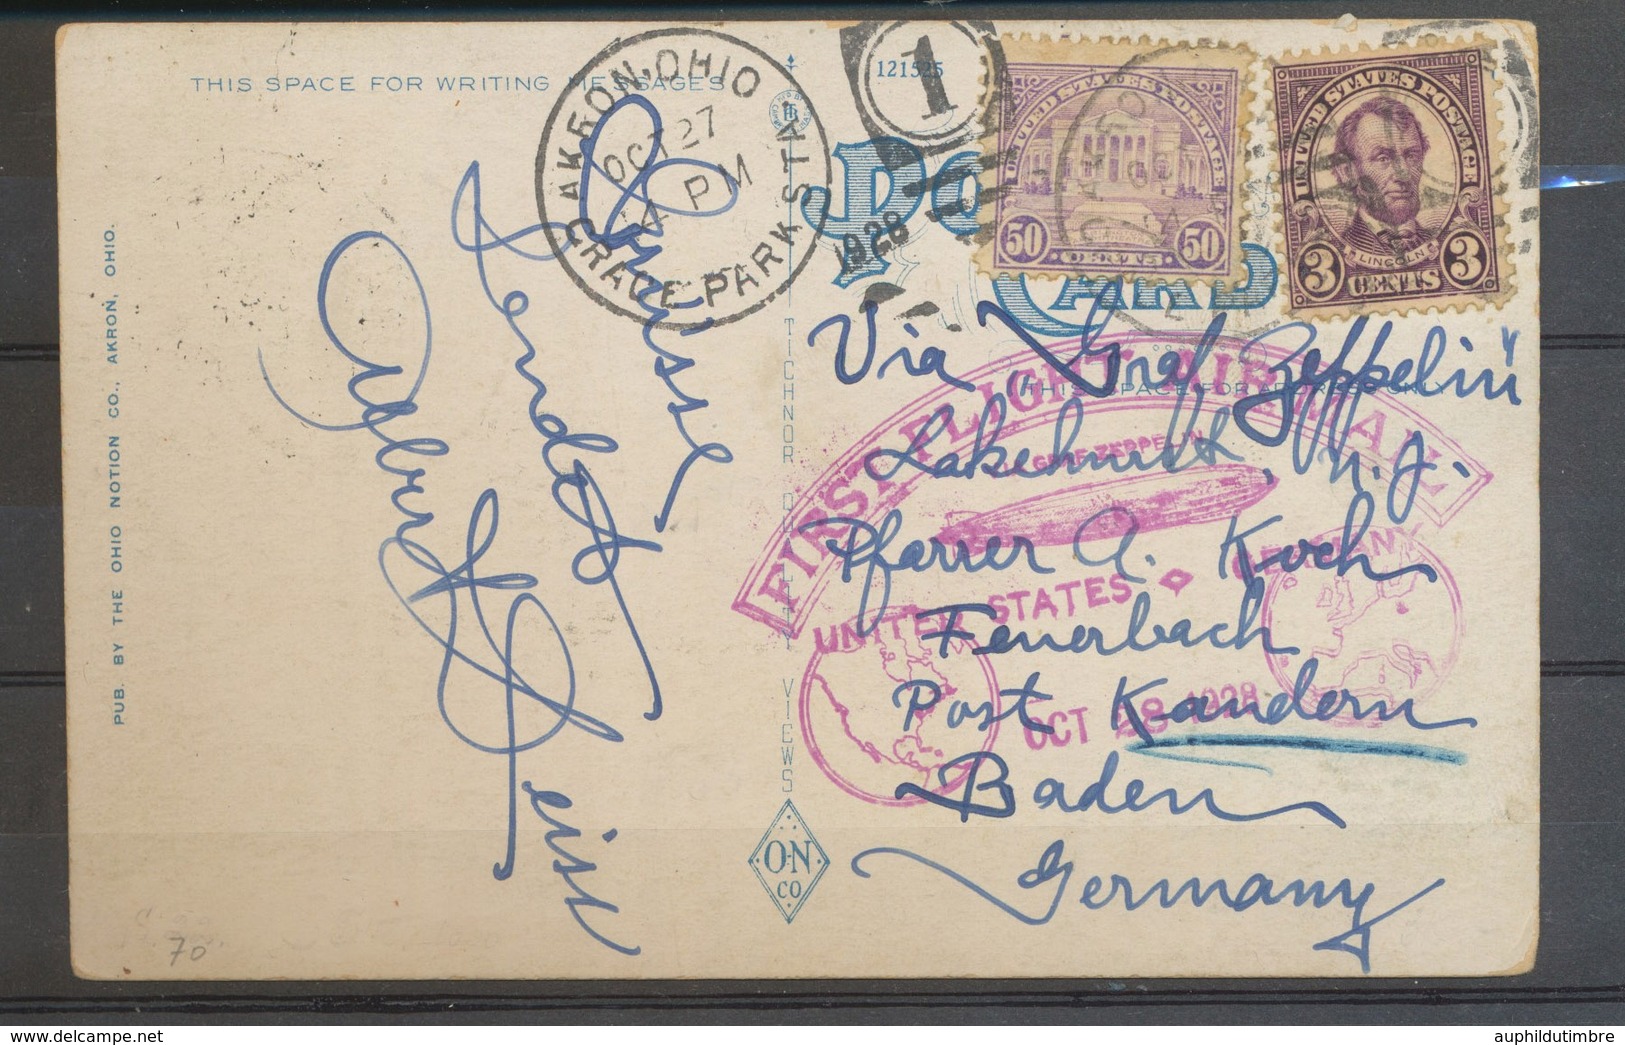 THIS SPACE FOR WRITING MESSAGES
AKRON, OHIO
OCT 27
4 PM
1928
GRACE PARK STA.
1
121525
POST
CARD
UNITED STATES POSTAGE
50 CENTS 50
UNITED STATES POSTAGE
LINCOLN
3 CENTS 3
THIS SPACE FOR ADDRESS ONLY
Via "Graf Zeppelin"
Lakehurst, N.J.
Pfarrer A. Koch
Feuerbach
Post Kandern
Baden
Germany
FIRST FLIGHT AIR MAIL
GRAF ZEPPELIN
UNITED STATES GERMANY
OCT 28 1928
Grüsse
sendet
Albert H. Heiss
PUB. BY THE OHIO NOTION CO., AKRON, OHIO.
TICHNOR QUALITY VIEWS
O-N
CO
70
auphildutimbre